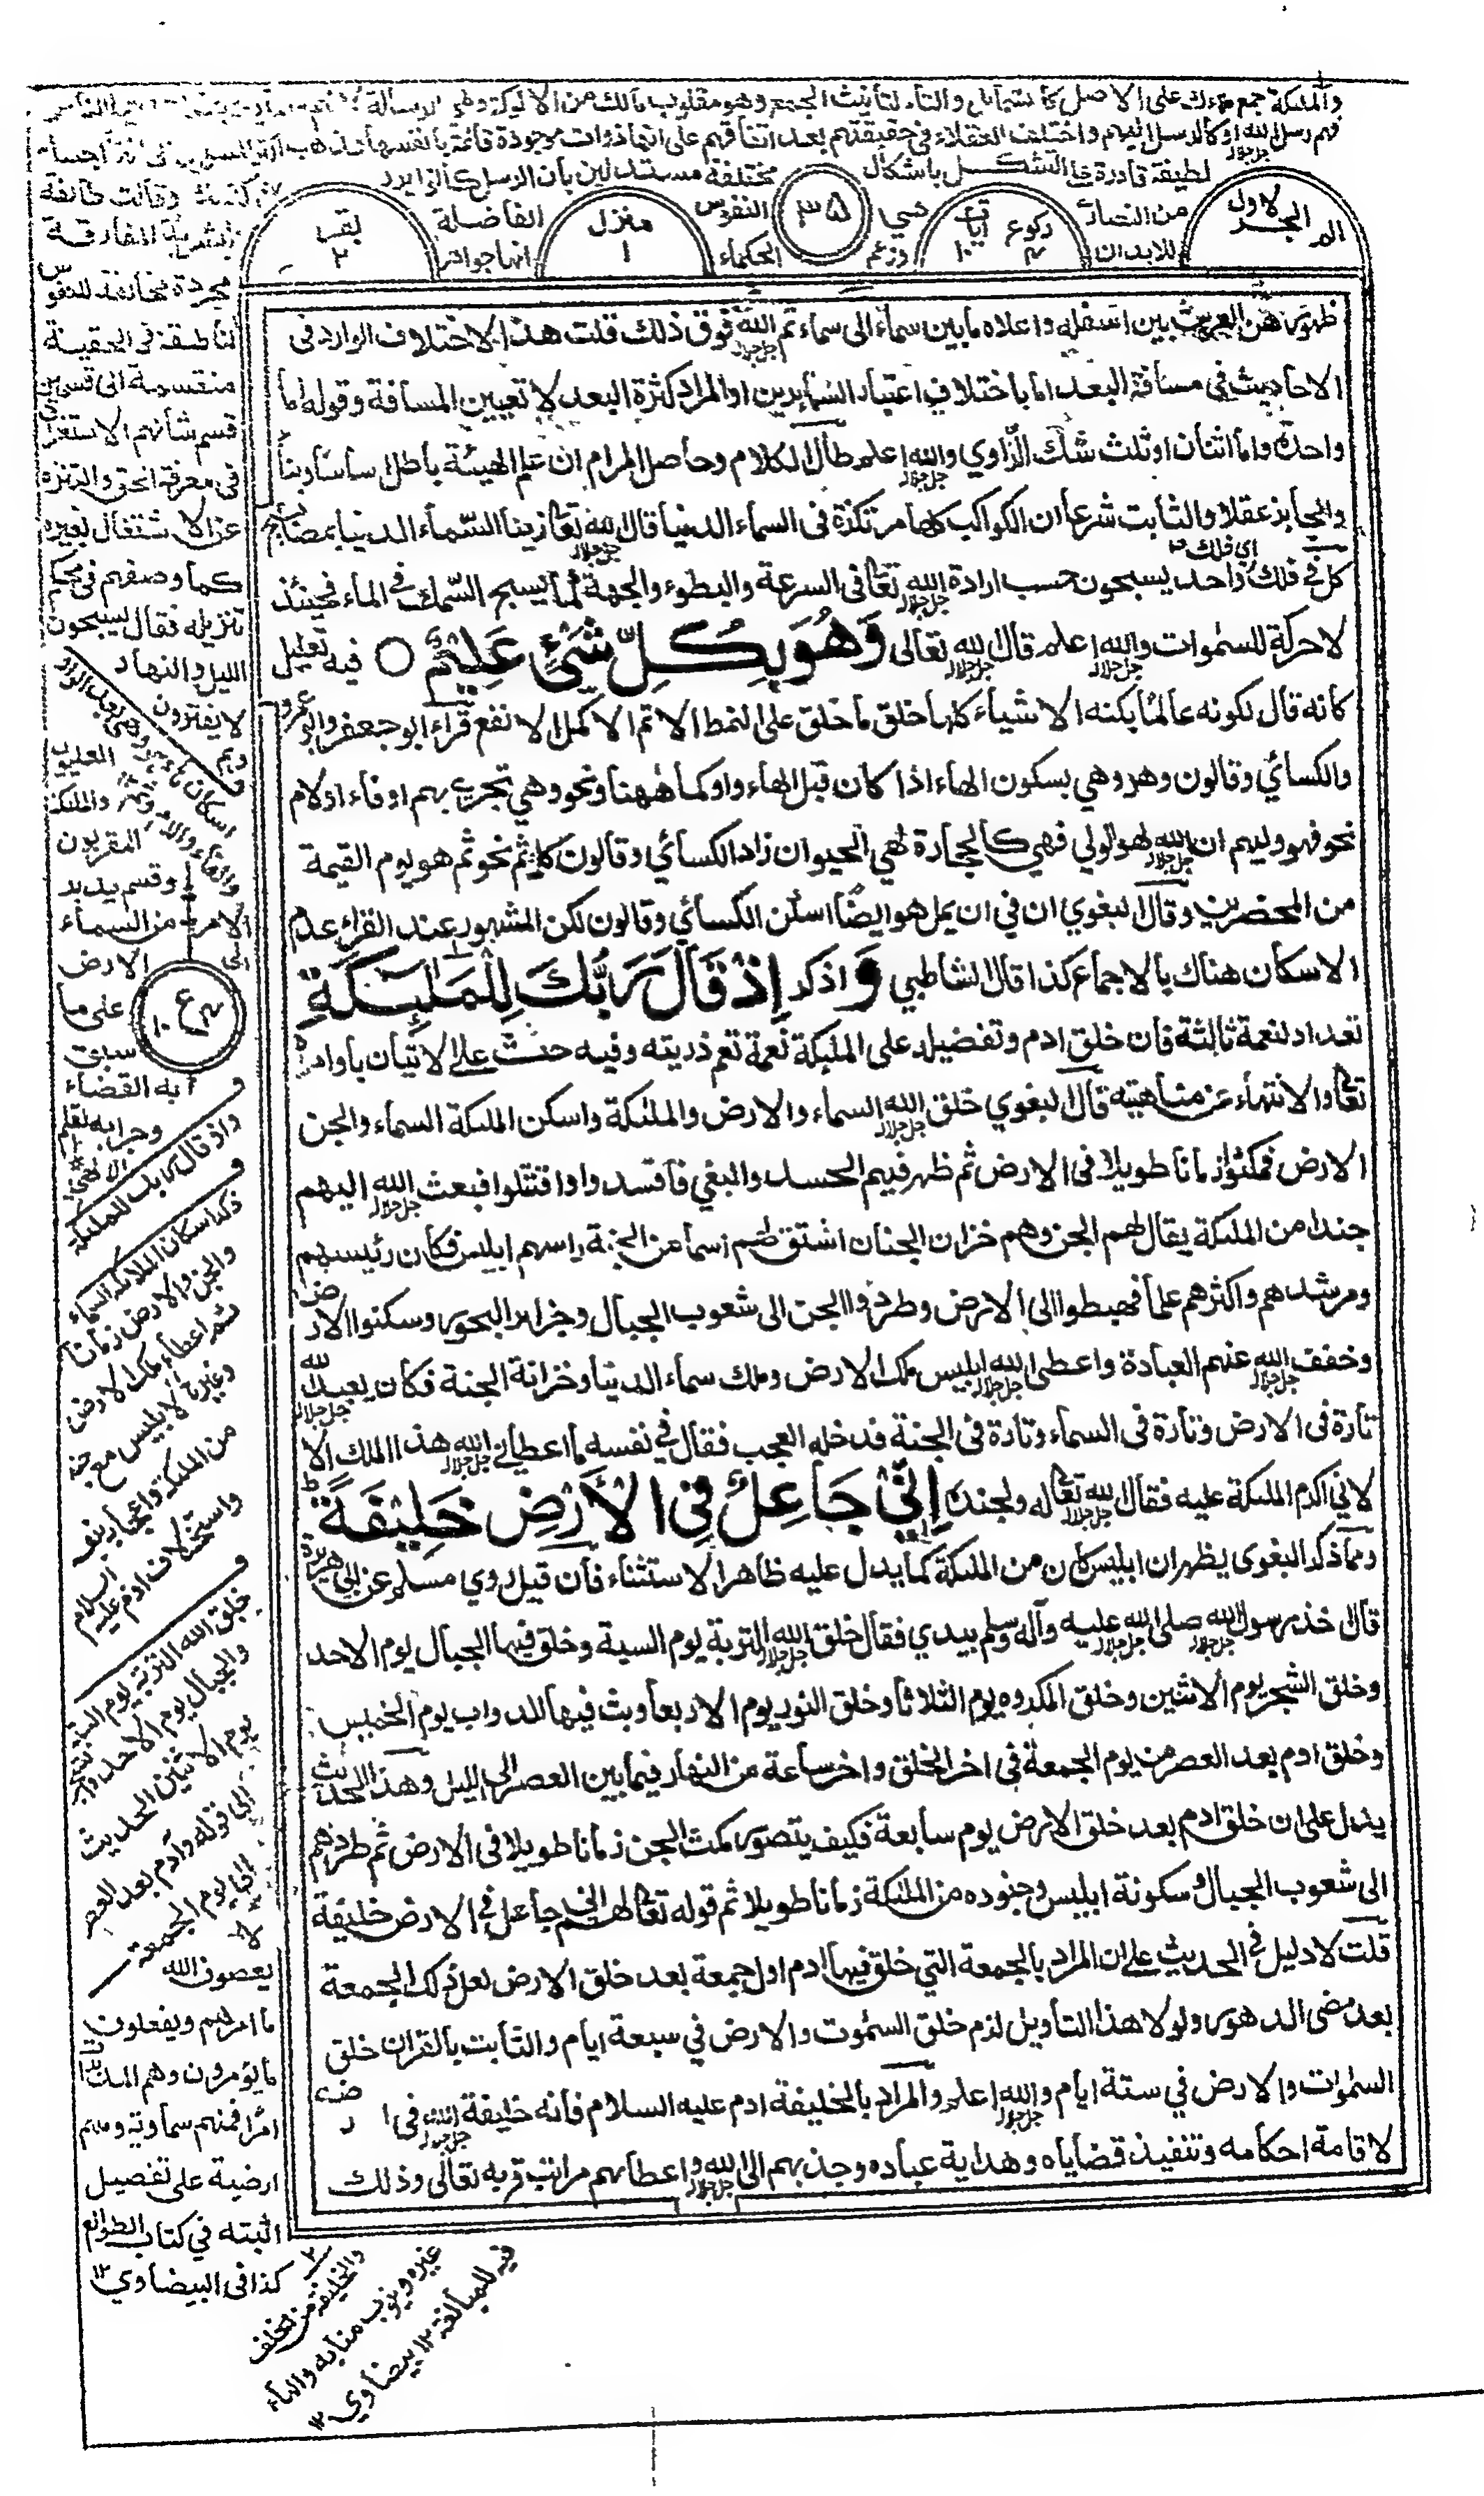 والملئكة جمع ملئك على الاصل كالشمائل والتاء لتانيث الجمع وهو مقلوب مالك من الالوكة وهي الرسالة
فهم رسل الله او كالرسل اليهم واختلف العقلاء في حقيقتهم بعد اتفاقهم على انها ذوات موجودة قائمة بانفسها فذهب اكثر المسلمين الى انها اجسام
لطيفة قادرة على التشكل باشكال مختلفة مستدلين بان الرسل كانوا يرونهم
كذلك وقالت طائفة
من النصارى هي النفوس الفاضلة
البشرية المفارقة
للابدان وزعم الحكماء انها جواهر
المجلد الاول
الم
ركوع ٤
آيات ١٠
٣٥
منزل
١
بقرة
٢
مجردة مخالفة للنفوس
الناطقة في الحقيقة
منقسمة الى قسمين
قسم شانهم الاستغراق
في معرفة الحق والتنزه
عن الاشتغال بغيره
كما وصفهم في محكم
تنزيله فقال يسبحون
الليل والنهار
لا يفترون
وهم
العليون
والملئكة
المقربون
وقسم يدبر
الامر من السماء
الى الارض
على ما
سبق
به القضاء
وجرى به القلم
الالهي
لا
يعصون الله
ما امرهم ويفعلون
ما يؤمرون وهم المدبرات
امرا فمنهم سماوية ومنهم
ارضية على تفصيل
اثبته في كتاب الطوالع
كذا في البيضاوي ١٢
ظهورهن العرش بين اسفله واعلاه ما بين سماء الى سماء ثم الله فوق ذلك قلت هذا الاختلاف الوارد في
الاحاديث في مسافة البعد اما باختلاف اعتبار السائرين او المراد كثرة البعد لا تعيين المسافة وقوله اما
واحدة واما اثنان او ثلث شك الراوي والله اعلم طال الكلام وحاصل المرام ان علم الهيئة باطل اساسا وبناء
والجائز عقلا والثابت شرعا ان الكواكب كلها مرتكزة في السماء الدنيا قال الله تعالى زينا السماء الدنيا بمصابيح
اي فلك
كل في فلك واحد يسبحون حسب ارادة الله تعالى في السرعة والبطوء والجهة كما يسبح السمك في الماء فحينئذ
لا حركة للسموات والله اعلم قال الله تعالى وَهُوَ بِكُلِّ شَيْءٍ عَلِيْمٌ ○ فيه تعليل
كانه قال لكونه عالما بكنه الاشياء كلها خلق ما خلق على النمط الاتم الاكمل الانفع قرا ابو جعفر وابو عمرو
والكسائي وقالون وهو وهي بسكون الهاء اذا كان قبل الهاء واو كما ههنا ونحو وهي تجري بهم او فاء او لام
نحو فهو وليهم ان الله لهو الولي فهي كالحجارة لهي الحيوان زاد الكسائي وقالون كلمة ثم نحو ثم هو يوم القيمة
من المحضرين وقال البغوي ان في ان يمل هو ايضا اسكن الكسائي وقالون لكن المشهور عند القراء عدم
الاسكان هناك بالاجماع كذا قال الشاطبي وَ اذكر اِذْ قَالَ رَبُّكَ لِلْمَلٰٓئِكَةِ
تعداد لنعمة ثالثة فان خلق ادم وتفضيله على الملئكة نعمة تعم ذريته وفيه حث على الاتيان باوامره
تعالى والانتهاء عن مناهيته قال البغوي خلق الله السماء والارض والملئكة واسكن الملئكة السماء والجن
الارض فمكثوا زمانا طويلا في الارض ثم ظهر فيهم الحسد والبغي فافسدوا واقتتلوا فبعث الله اليهم
جندا من الملئكة يقال لهم الجن وهم خزان الجنان اشتق لهم اسما من الجنة راسهم ابليس فكان رئيسهم
ومرشدهم واكثرهم علما فهبطوا الى الارض وطردوا الجن الى شعوب الجبال وجزائر البحور وسكنوا الارض
وخفف الله عنهم العبادة واعطى الله ابليس ملك الارض وملك سماء الدنيا وخزانة الجنة فكان يعبد الله
تارة في الارض وتارة في السماء وتارة في الجنة فدخله العجب فقال في نفسه ما اعطاني الله هذا الملك الا
لاني اكرم الملئكة عليه فقال الله تعالى له ولجنده اِنِّيْ جَاعِلٌ فِي الْاَرْضِ خَلِيْفَةً ط
ومما ذكر البغوي يظهر ان ابليس كان من الملئكة كما يدل عليه ظاهر الاستثناء فان قيل روي مسلم عن ابي هريرة
قال اخذ رسول الله صلى الله عليه وآله وسلم بيدي فقال خلق الله التربة يوم السبة وخلق فيها الجبال يوم الاحد
وخلق الشجر يوم الاثنين وخلق المكروه يوم الثلاثا وخلق النور يوم الاربعا وبث فيها الدواب يوم الخميس
وخلق ادم بعد العصر من يوم الجمعة في اخر الخلق واخر ساعة من النهار فيما بين العصر الى الليل وهذا الحديث
يدل على ان خلق ادم بعد خلق الارض يوم سابعة فكيف يتصور مكث الجن زمانا طويلا في الارض ثم طردهم
الى شعوب الجبال وسكونة ابليس وجنوده من الملئكة زمانا طويلا ثم قوله تعالى لهم اني جاعل في الارض خليفة
قلت لا دليل في الحديث على ان المراد بالجمعة التي خلق فيها ادم اول جمعة بعد خلق الارض لعل ذلك الجمعة
بعد مضى الدهور ولو لا هذا التاويل لزم خلق السموت والارض في سبعة ايام والثابت بالقران خلق
السموات والارض في ستة ايام والله اعلم والمراد بالخليفة ادم عليه السلام فانه خليفة الله في ارضه
لاقامة احكامه وتنفيذ قضاياه وهداية عباده وجذبهم الى الله واعطائهم مراتب قربه تعالى وذلك
ع ٤
١٠
واذ قال ربك للملئكة
ذكر اسكان الملائكة السماء
والجن والارض زمانا
ثم اعطاء ملك الارض
وغيره لابليس مع جنده
من الملئكة واعجابه بنفسه
واستخلاف ادم عليه السلام
خلق الله التربة يوم السبت
والجبال يوم الاحد والشجر
يوم الاثنين الحديث
الى قوله وآدم بعد العصر
الى يوم الجمعة
والخليفة من يخلف
غيره وينوب منابه والتاء
فيه للمبالغة ١٢ بيضاوي ١٢